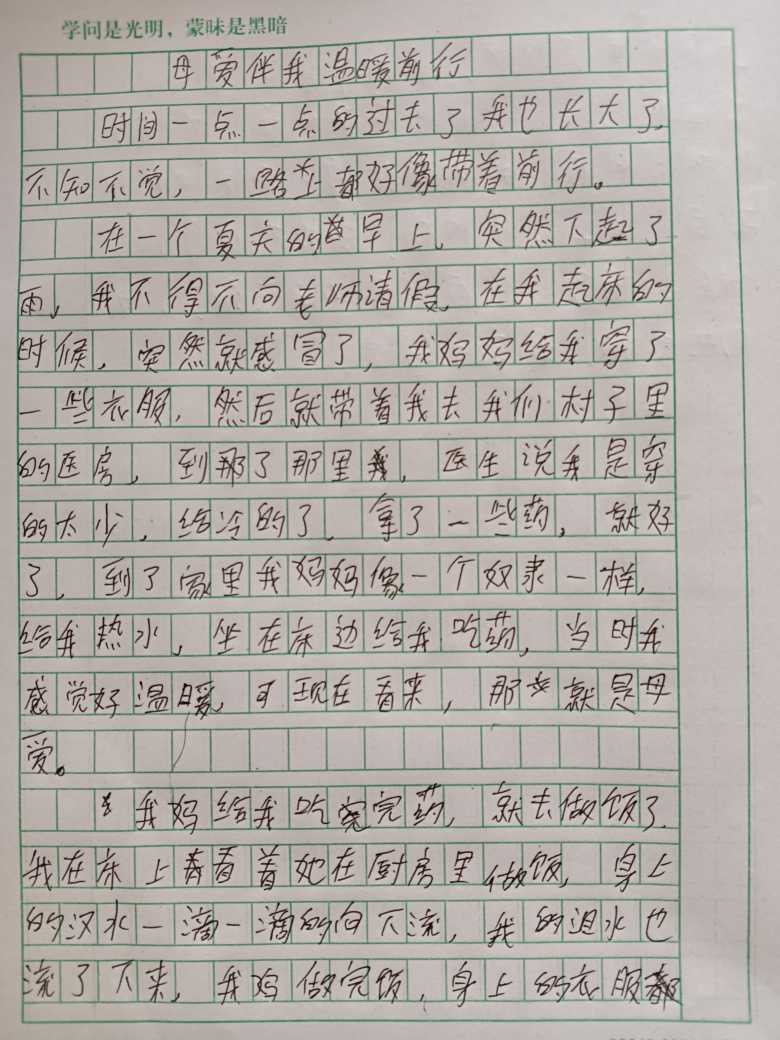 学问是光明，蒙昧是黑暗
母爱伴我温暖前行
时间一点一点的过去了我也长大了，
不知不觉，一路上都好像带着前行。
在一个夏天的早上，突然下起了
雨，我不得不向老师请假，在我起床的
时候，突然就感冒了，我妈妈给我穿了
一些衣服，然后就带着我去我们村子里
的医房，到那了那里，医生说我是穿
的太少，给冷的了，拿了一些药，就好
了，到了家里我妈妈像一个奴隶一样，
给我热水，坐在床边给我吃药，当时我
感觉好温暖，可现在看来，那就是母
爱。
我妈给我吃完药，就去做饭了，
我在床上看着她在厨房里做饭，身上
的汉水一滴一滴的向下流，我的泪水也
流了下来，我妈做完饭，身上的衣服都